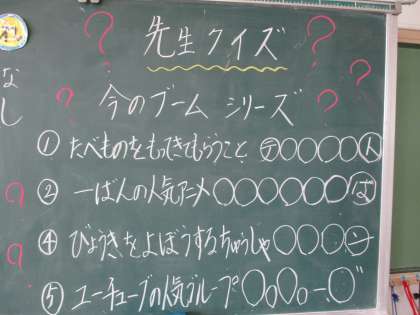 先生クイズ
今のブームシリーズ
なし
① たべものをもってきてもらうこと ○○○○人
② 一ばんの人気アニメ○○○○○○ば
④ びょうきをよぼうするちゅうしゃ○○○ン
⑤ ユーチューブの人気グループ○○○○ー○゛